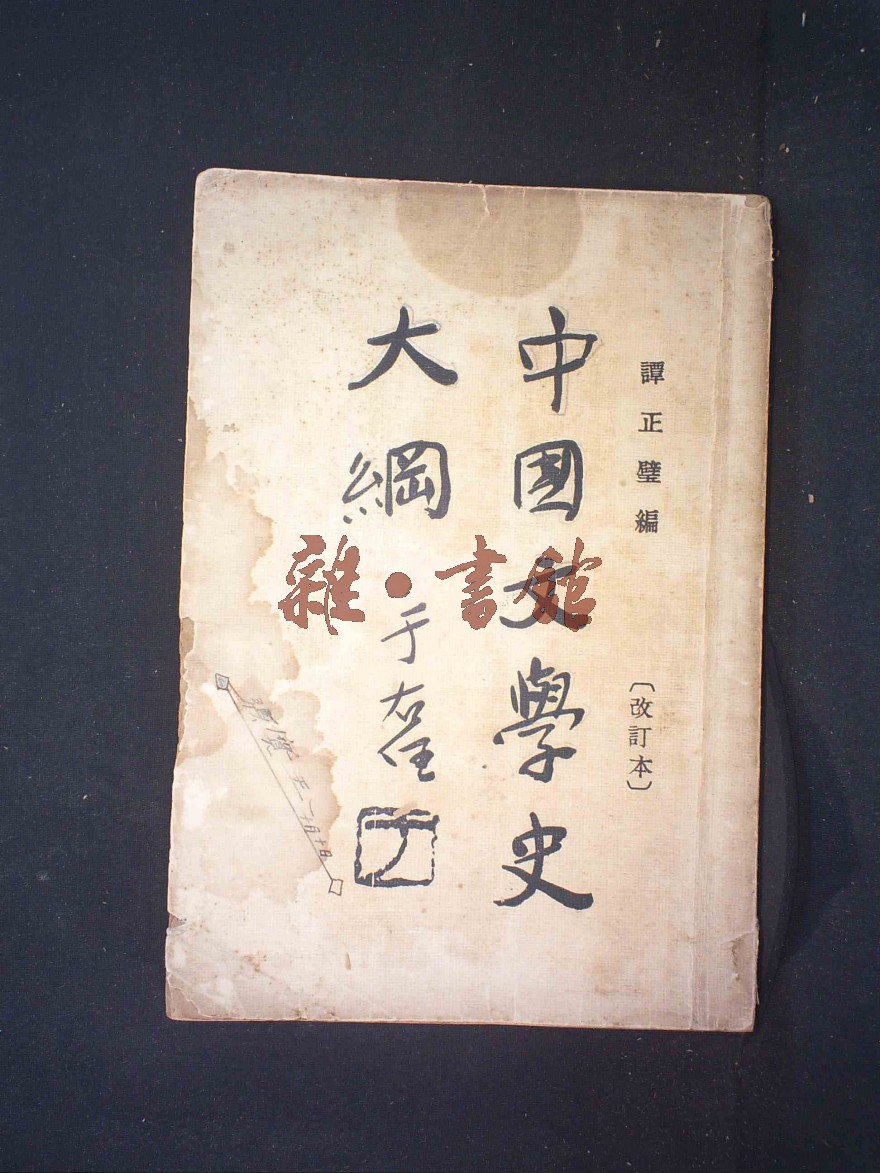 譚正璧編
〔改訂本〕
中國文學史
大綱
于右任
雜•書館